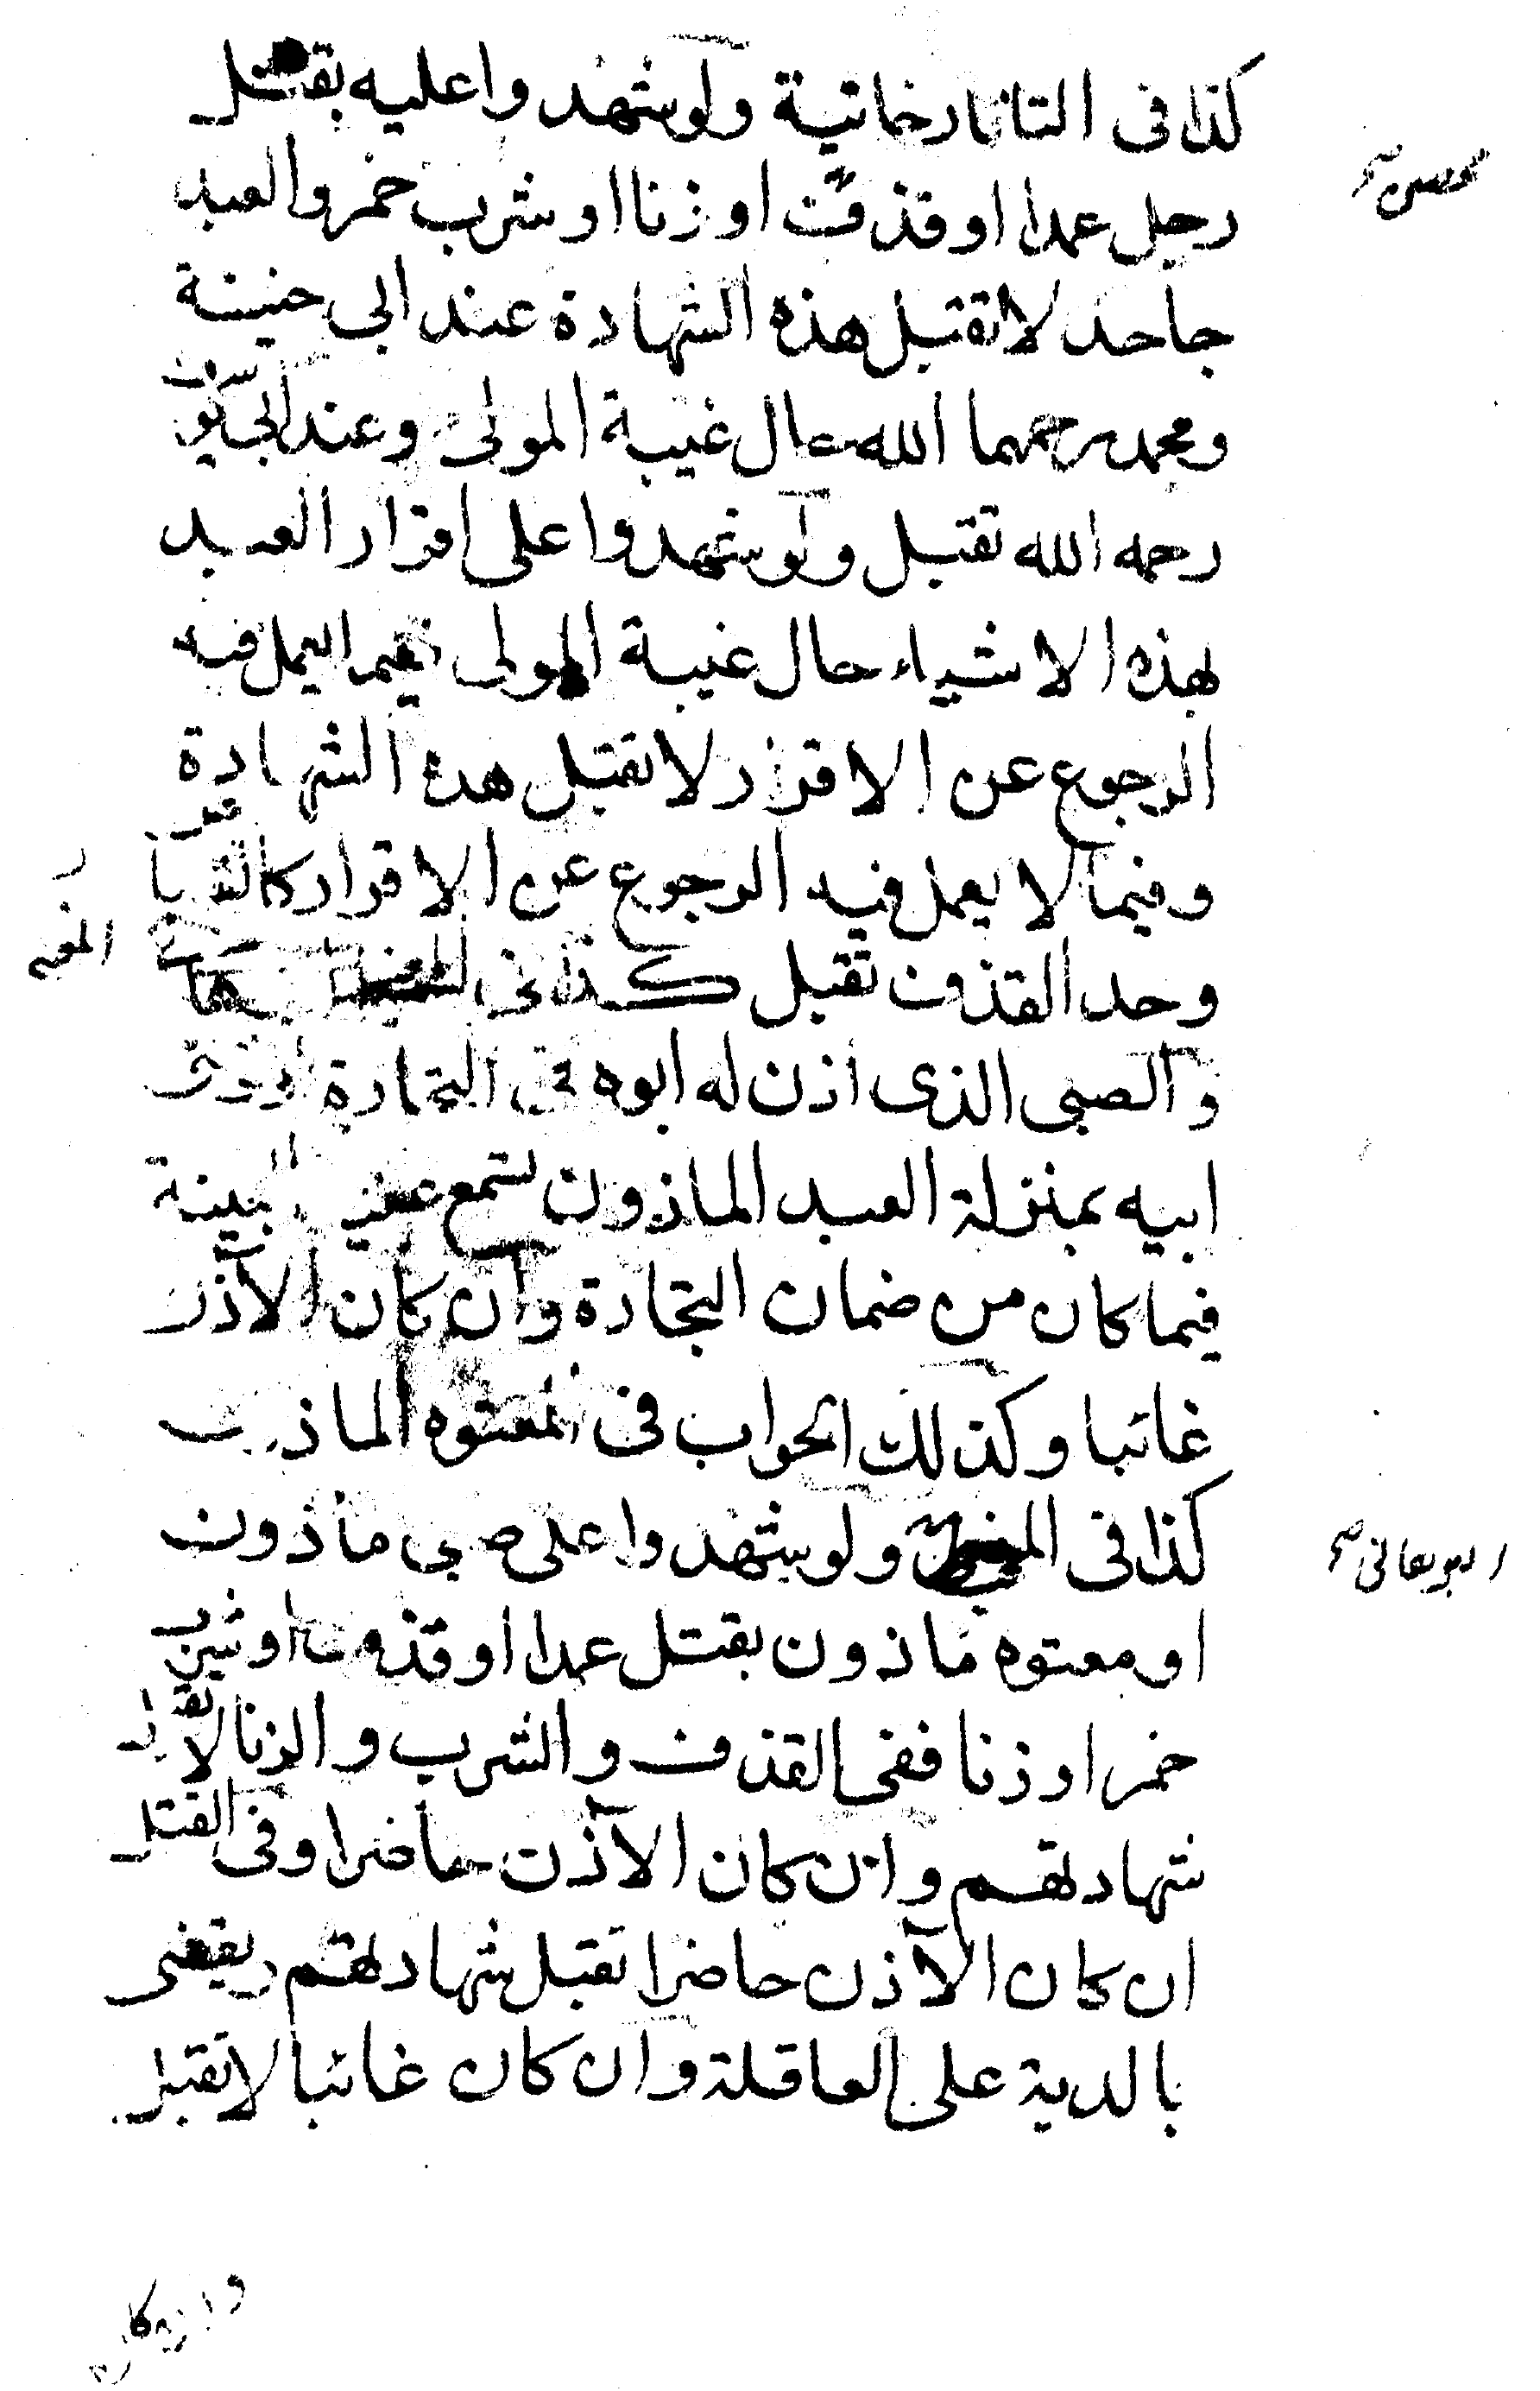 كذا فى التاتارخانية ولو شهدوا عليه بقتل
محصن صح
رجل عمدا او قذف او زنا او شرب خمر والعبد
جاحد لا تقبل هذه الشهادة عند ابى حنيفة
ومحمد رحمهما الله حال غيبة المولى وعند ابى يوسف
رحمه الله تقبل ولو شهدوا على اقرار العبد
بهذه الاشياء حال غيبة المولى فيما يعمل فيه
الرجوع عن الاقرار لا تقبل هذه الشهادة
وفيما لا يعمل فيه الرجوع عن الاقرار كالقصاص
وحد القذف تقبل كذا فى المغنى
والصبى الذى اذن له ابوه فى التجارة او وصى
ابيه بمنزلة العبد الماذون تسمع عليه البينة
فيما كان من ضمان التجارة وان كان الآذن
غائبا وكذلك الجواب فى المعتوه الماذون
كذا فى المحيط ولو شهدوا على صبى ماذون
البرهانى صح
او معتوه ماذون بقتل عمدا او قذف او شرب
خمر او زنا ففى القذف والشرب والزنا لا تقبل
شهادتهم وان كان الآذن حاضرا وفى القتل
ان كان الآذن حاضرا تقبل شهادتهم ويقضى
بالدية على العاقلة وان كان غائبا لا تقبل
وان كان